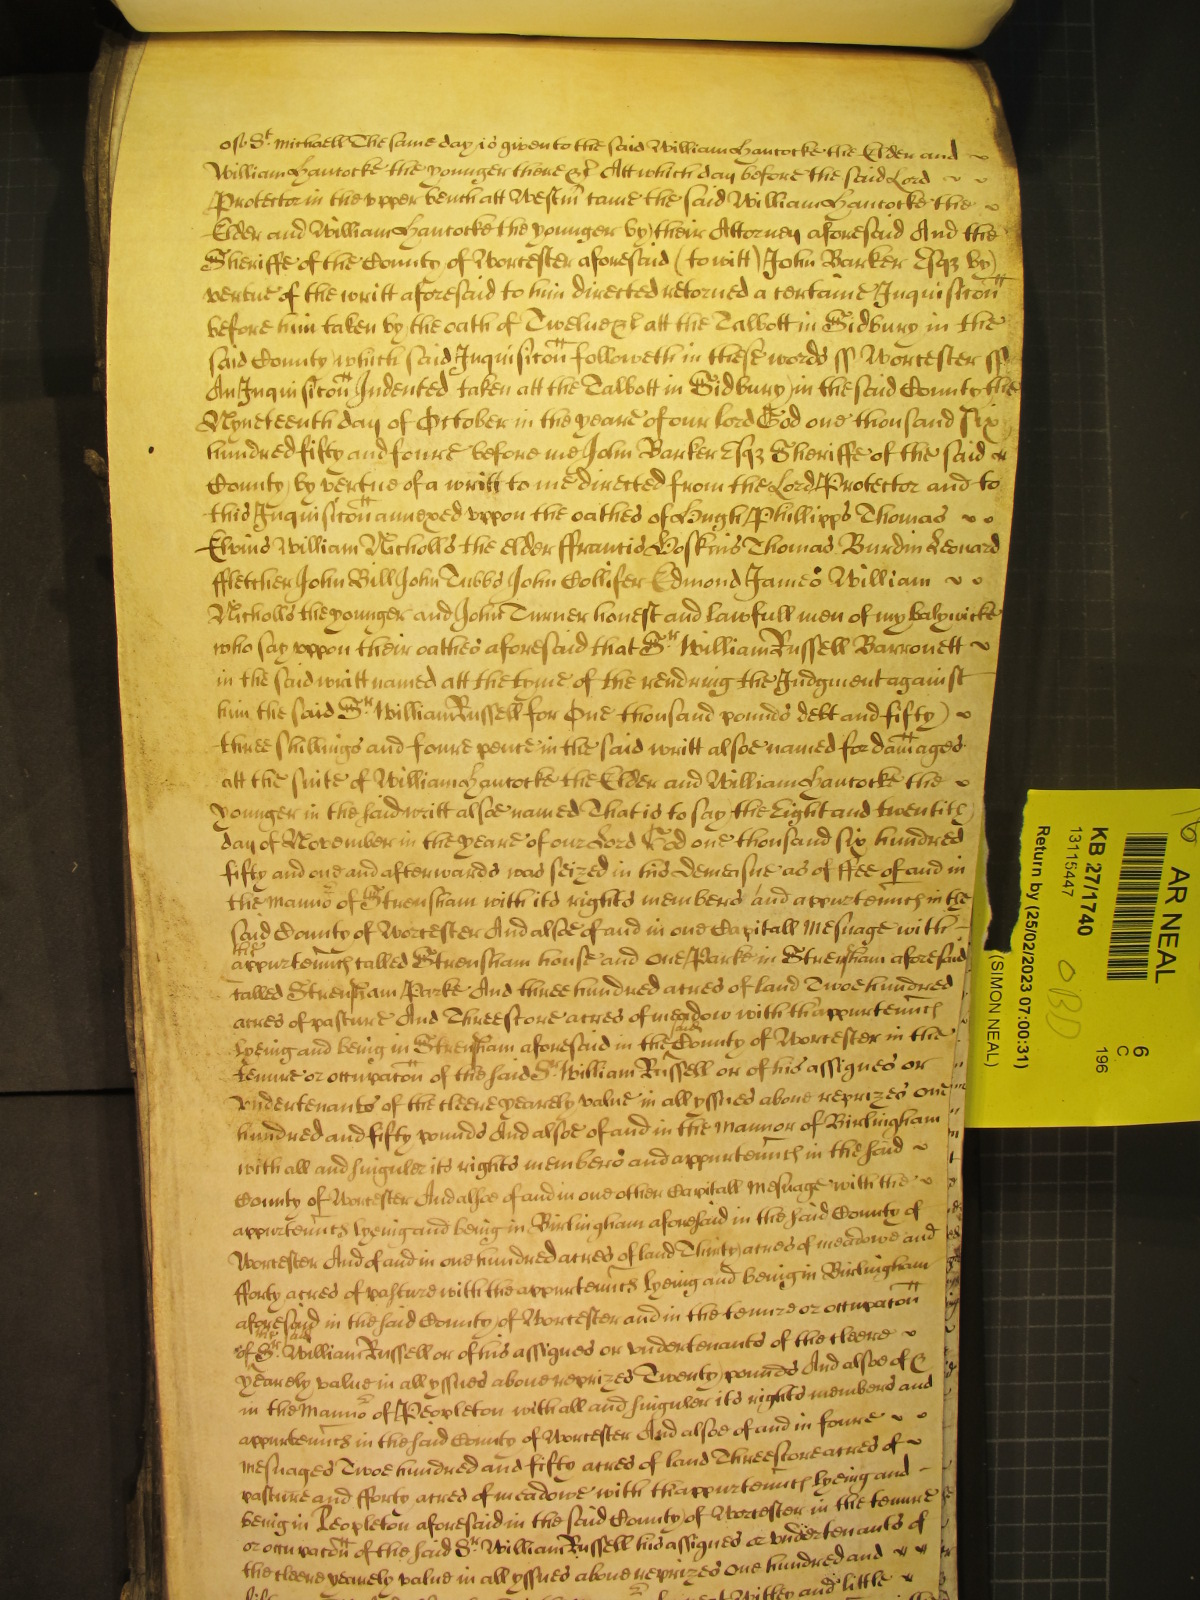 of St. Michaell The same day is given to the said William Hancocke the Elder and
William Hancocke the younger there &c Att which day before the said Lord
Protector in the upper bench att Westm came the said William Hancocke the
Elder and William Hancocke the younger by their Attorney aforesaid And the
Sheriffe of the County of Worcester aforesaid (to witt) John Barker Esqz by
vertue of the writt aforesaid to him directed retorned a certaine Inquisicon
before him taken by the oath of Twelue &c att the Talbott in Sidbury in the
said County which said Inquisicon followeth in these words ss Worcester ss
An Inquisicon Indented taken att the Talbott in Sidbury in the said County the
Nyneteenth day of October in the yeare of our lord God one thousand six
hundred fifty and foure before me John Barker Esqz Sheriffe of the said
County by vertue of a writt to me directed from the Lord Protector and to
this Inquisicon annexed vppon the oathes of Hugh Phillipps Thomas
Elvins William Nicholls the elder ffrancis Hoskins Thomas Burdin Leonard
ffletcher John Bill John Tubbs John Collifer Edmond James William
Nicholls the younger and John Turner honest and lawfull men of my balywicke
who say vppon their oathes aforesaid that Sr. William Russell Barronett
in the said writt named att the tyme of the rendring the Judgment against
him the said Sr. William Russell for One thousand pounds debt and fifty
three shillings and foure pence in the said writt alsoe named for damages
att the suite of William Hancocke the Elder and William Hancocke the
younger in the said writt alsoe named That is to say the Eight and twentith
day of November in the yeare of our Lord God one thousand six hundred
fifty and one and afterwards was seized in his demeasne as of ffee of and in
the Manno of Strensham with its rights members and appurtennc in the
said County of Worcester And alsoe of and in one Capitall Mesuage with
the appurtennc called Strensham house and one Parke in Strensham aforesaid
called Strensham Parke And three hundred acres of land Twoe hundred
acres of pasture And Threescore acres of meadow with thappurtennc
lyeing and being in Strensham aforesaid in the said County of Worcester in the
tenure or occupacon of the said Sr. William Russell or of his assignes or
vndertenants of the cleere yearely value in all yssues aboue reprizes one
hundred and fifty pounds And alsoe of and in the Mannor of Birlingham
with all and singuler its rights members and appurtennc in the said
County of Worcester And alsoe of and in one other Capitall Mesuage with the
appurtenncs lyeing and being in Birlingham aforesaid in the said County of
Worcester And of and in one hundred acres of land Thirty acres of meadowe and
fforty acres of pasture with the appurtenncs lyeing and being in Birlingham
aforesaid in the said County of Worcester and in the tenure or occupacon
of the said Sr. William Russell or of his assignes or vndertenants of the cleere
yearely value in all yssues aboue reprizes Twenty pounds And alsoe of &
in the Manno of Peopleton with all and singuler its rights members and
appurtenncs in the said County of Worcester And alsoe of and in foure
mesuages Twoe hundred and fifty acres of land Threescore acres of
pasture and fforty acres of meadowe with thappurtennc lyeing and
being in Peopleton aforesaid in the said County of Worcester in the tenure
or occupacon of the said Sr. William Russell his assignes or vndertenants of
the cleere yearely value in all yssues aboue reprizes One hundred and
Wittley and little
AR NEAL
KB 27/1740
13115447
Return by (25/02/2023 07:00:31)
(SIMON NEAL)
6
C
196
OBD